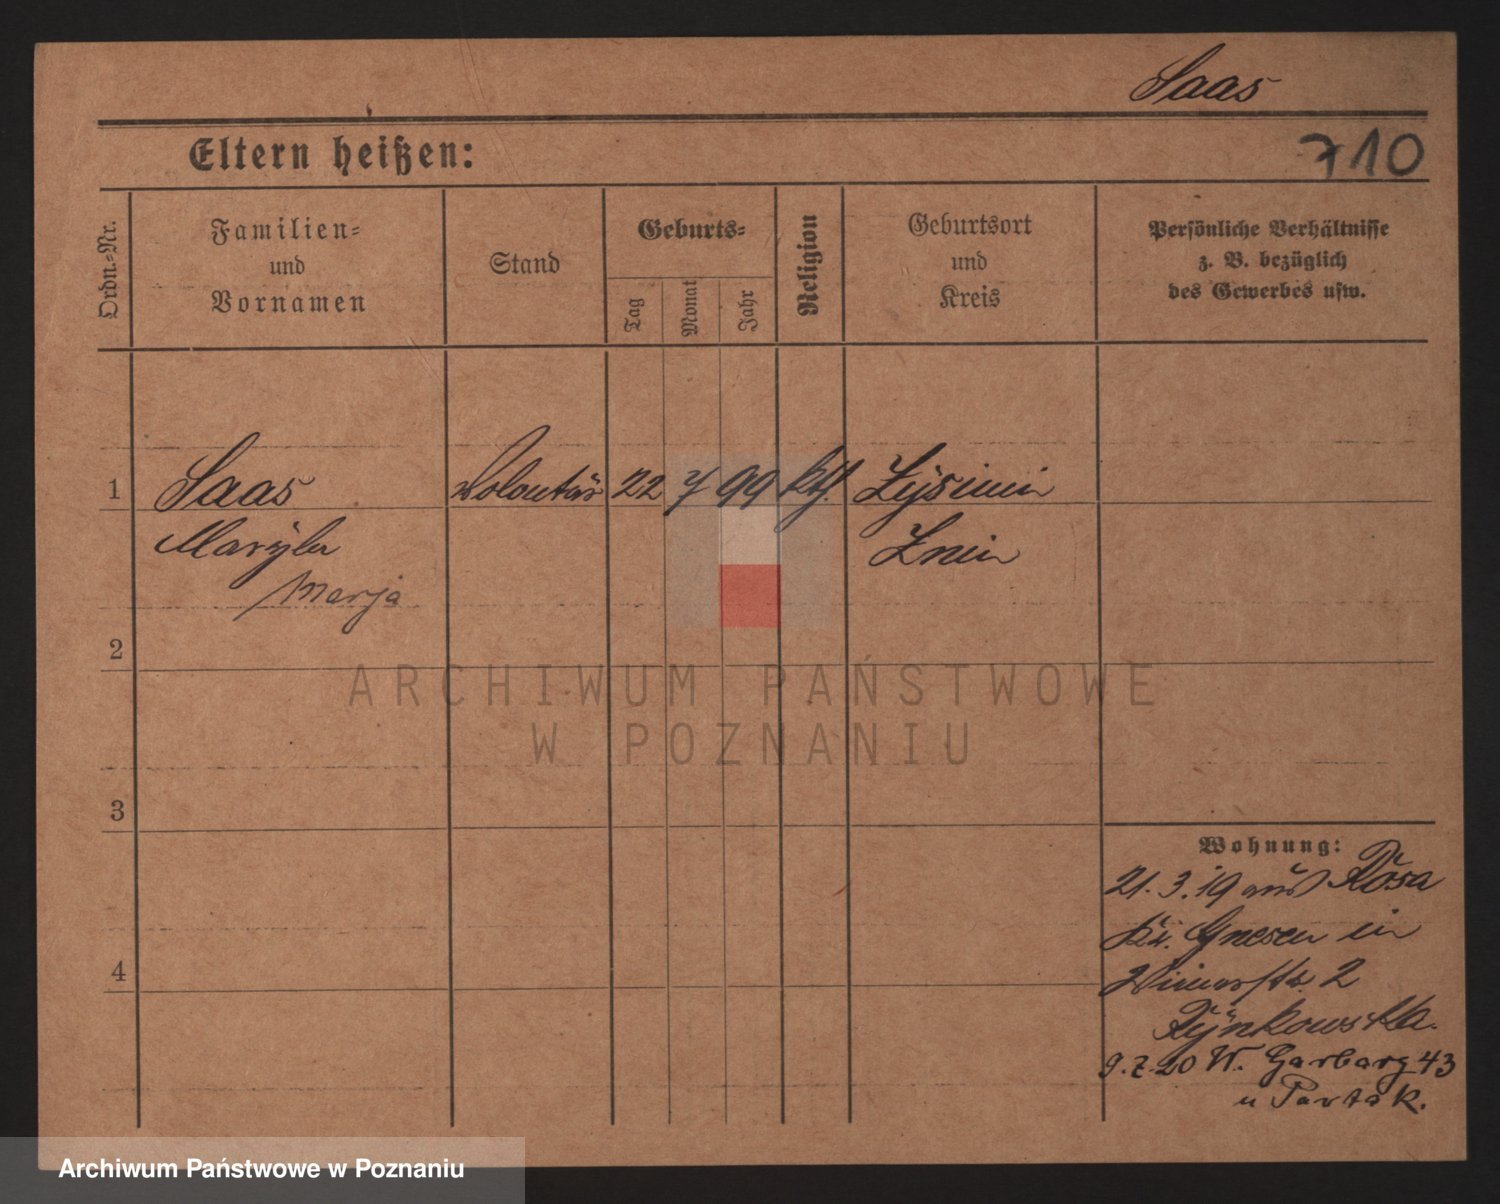 Saas
Eltern heißen:
710
Ordn.-Nr.
Familien-
und
Vornamen
Stand
Geburts-
Tag
Monat
Jahr
Religion
Geburtsort
und
Kreis
Persönliche Verhältnisse
z. B. bezüglich
des Gewerbes usw.
1
Saas
Volontär
22
7
99
kth.
Znin
Marja
2
ARCHIWUM PAŃSTWOWE
W POZNANIU
3
Wohnung:
21.3.19 aus Rosa
Kr. Gnesen in
2
Rynkowska.
9.7.20 W. Garbary 43
u Partak.
4
Archiwum Państwowe w Poznaniu